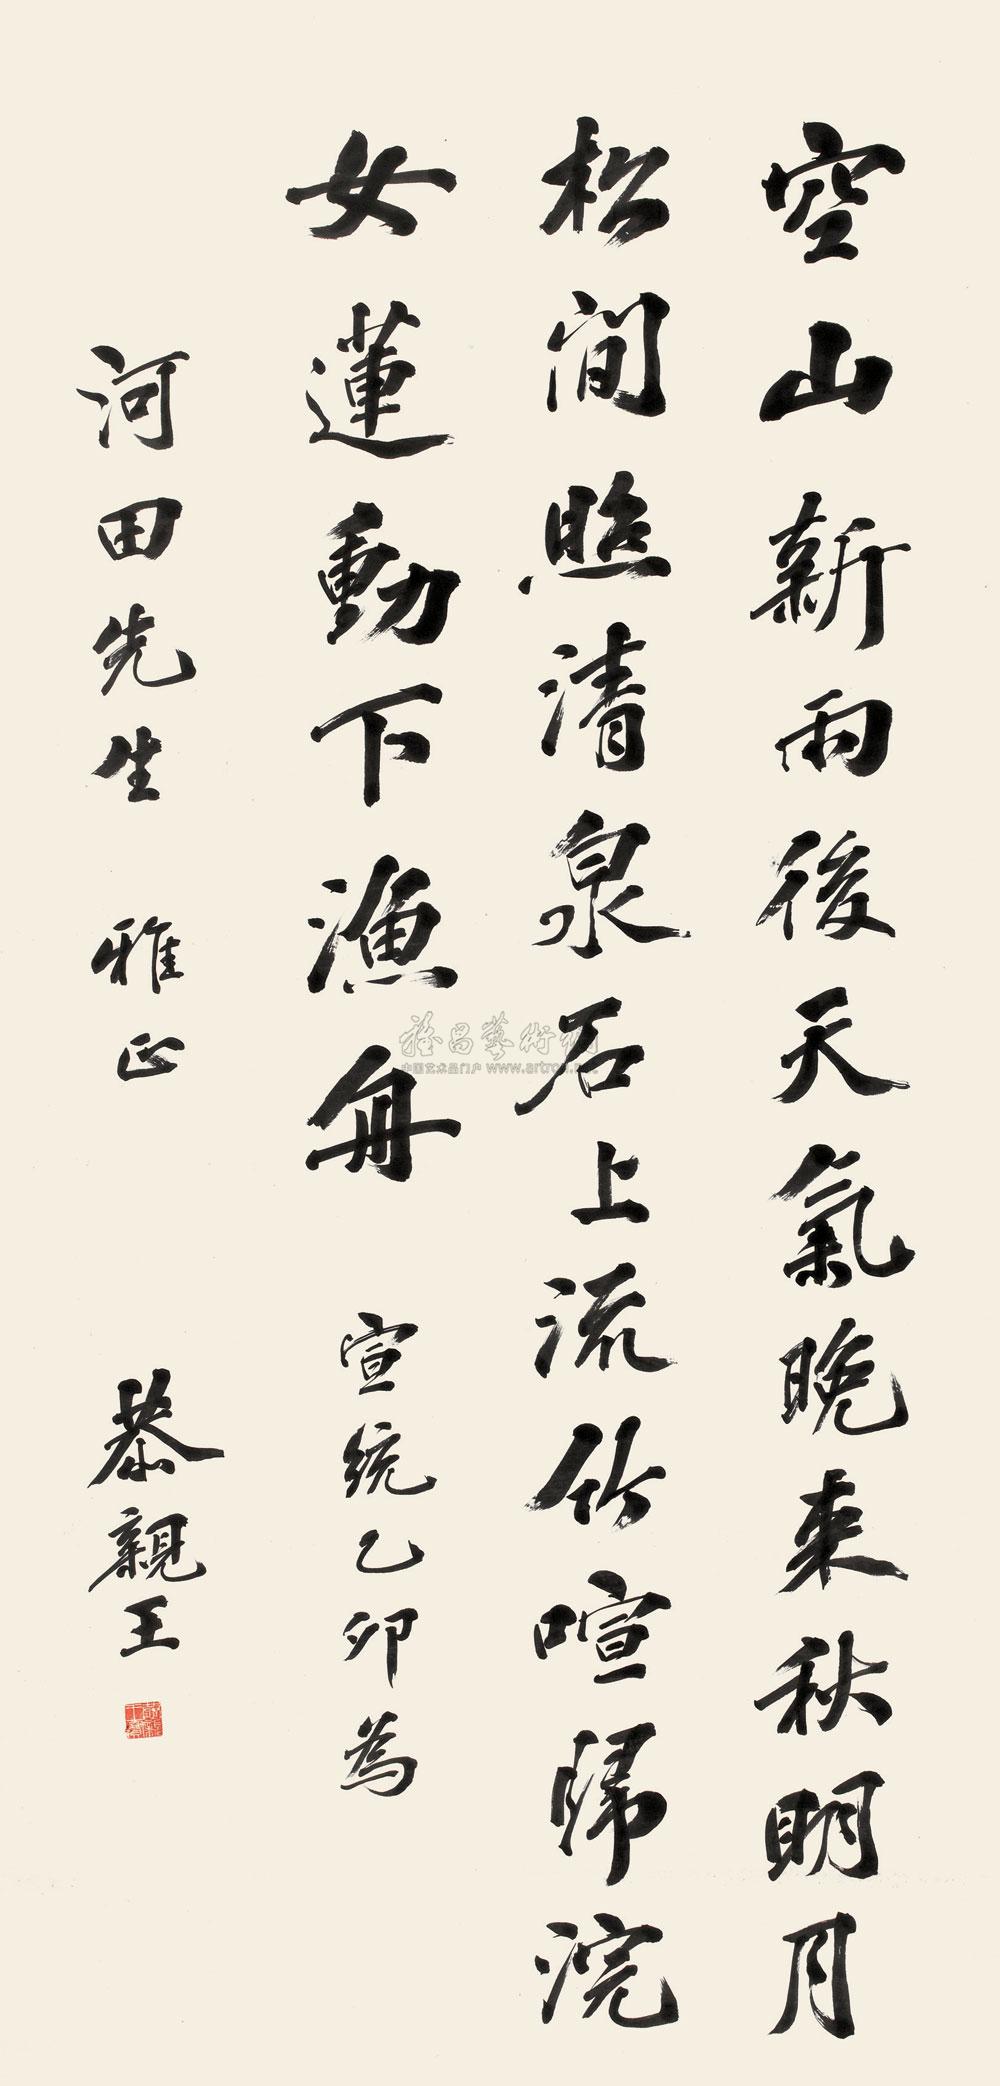 空山新雨後天氣晚來秋明月
松間照清泉石上流竹喧歸浣
女蓮動下漁舟
宣統乙卯為
河田先生 雅正
恭親王
雅昌藝術網
中国艺术品门户 www.artron.net